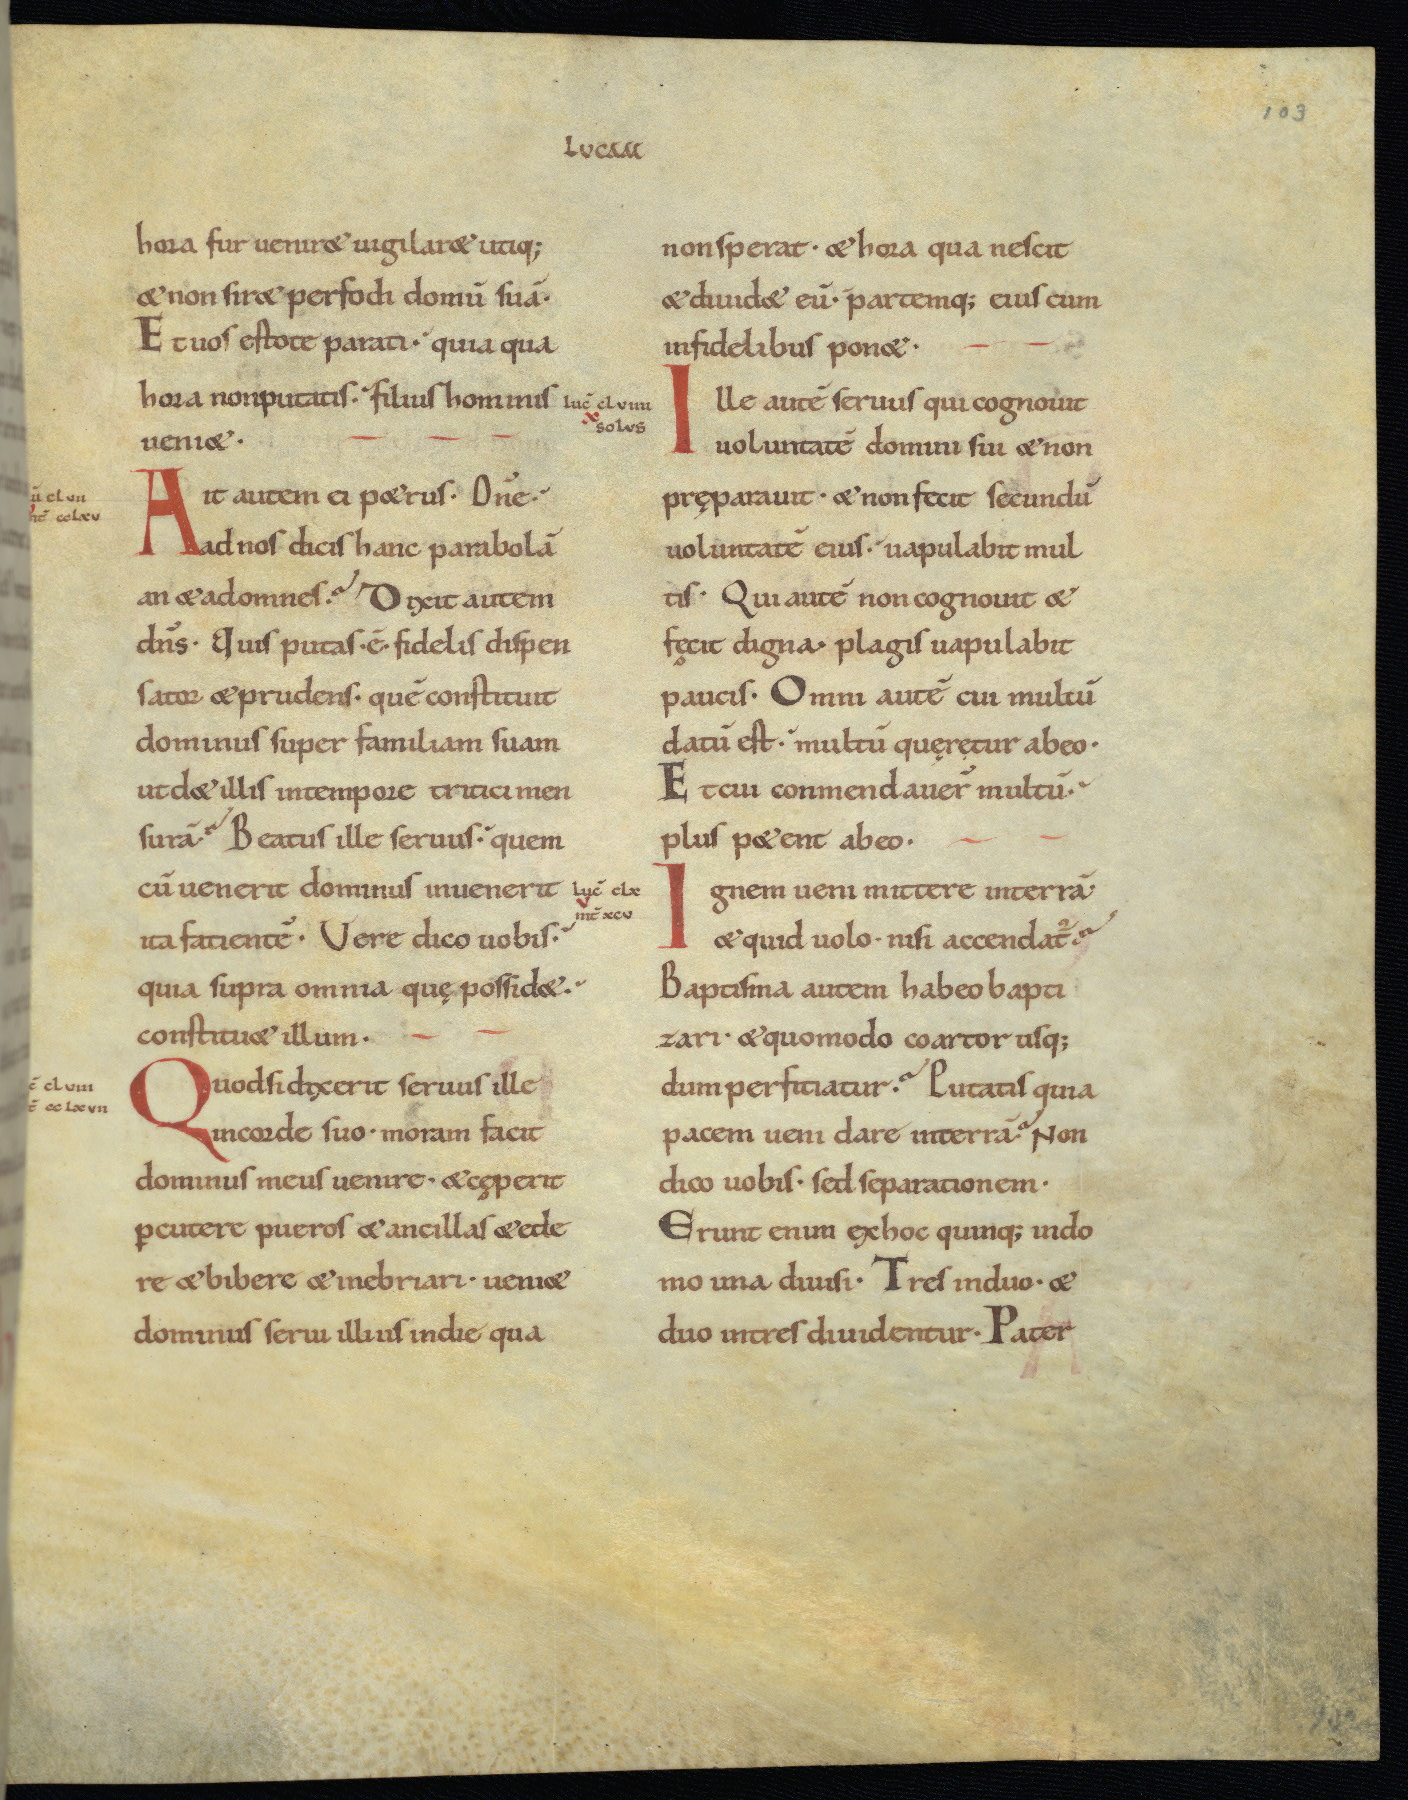 103
LUCAM
hora fur ueniret uigilaret utiq;
et non siret perfodi domū suā·
Et uos estote parati· quia qua
hora non putatis· filius hominis
ueniet·
Ait autem ei petrus· Dn̄e·
ad nos dicis hanc parabolā
an et ad omnes· Dixit autem
dn̄s· Quis putas·ē·fidelis dispen
sator et prudens· quē constituit
dominus super familiam suam
ut det illis in tempore tritici men
surā· Beatus ille seruus· quem
cū uenerit dominus inuenerit
ita fatientē· Vere dico uobis·
quia supra omnia quę possidet·
constituet illum·
Quod si dixerit seruus ille
in corde suo· moram facit
dominus meus uenire· et cęperit
ꝑcutere pueros et ancillas et ede
re et bibere et inebriari· ueniet
dominus serui illius in die qua
luc̄ clviiii
x
solus
luc̄ clx
v
mt̄ xcv
ū clvii
mt̄ cclxv
c̄ clviii
t̄ cclxvii
non sperat· et hora qua nescit
et diuidet eū· partemq; eius cum
infidelibus ponet·
Ille autē seruus qui cognouit
uoluntatē domini sui et non
pręparauit· et non fecit secundū
uoluntatē eius· uapulabit mul
tis· Qui autē non cognouit et
fęcit digna· plagis uapulabit
paucis· Omni autē cui multū
datū est· multū quęrętur ab eo·
Et cui conmendauer̄ multū·
plus petent ab eo·
Ignem ueni mittere in terrā
et quid uolo· nisi accendat᷑·
Baptisma autem habeo bapti
zari· et quomodo coartor usq;
dum perfitiatur· Putatis quia
pacem ueni dare in terrā· Non
dico uobis· sed separationem·
Erunt enim ex hoc quinq; in do
mo una diuisi· Tres in duo· et
duo in tres diuidentur· Pater